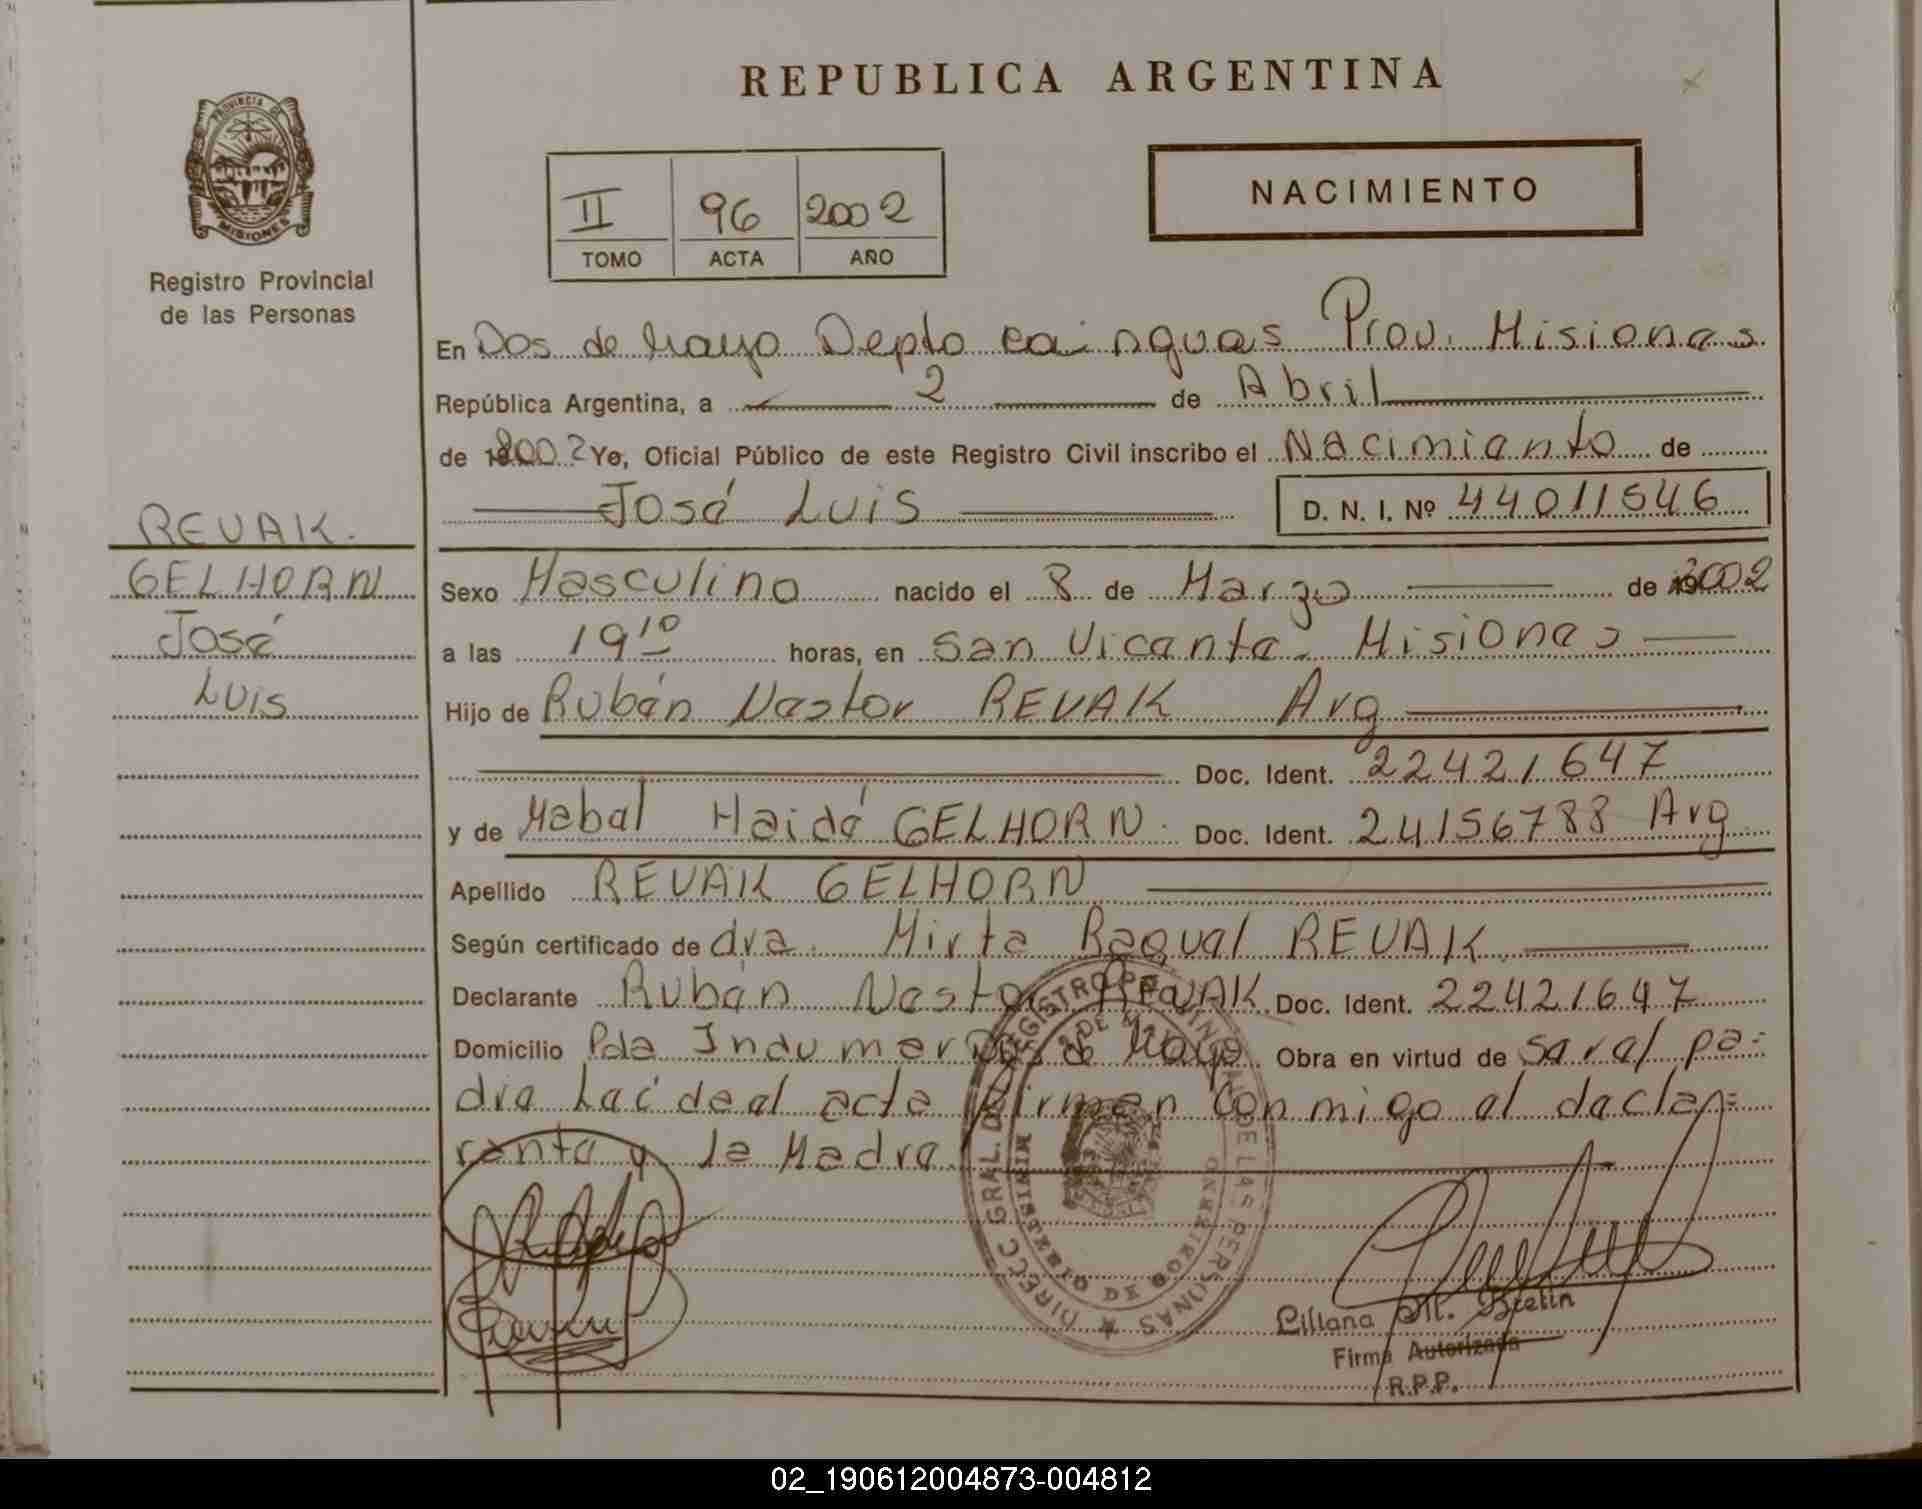 REPUBLICA ARGENTINA
PROVINCIA DE
MISIONES
Registro Provincial
de las Personas
II 96 2002
TOMO ACTA AÑO
NACIMIENTO
En Dos de Mayo Depto Cainguas Prov. Misiones
República Argentina, a 2 de Abril
de 2002 Yo, Oficial Público de este Registro Civil inscribo el Nacimiento de
José Luis D. N. I. Nº 44011546
REVAK
GELHORN
José
Luis
Sexo Masculino nacido el 8 de Marzo de 2002
a las 19 10 horas, en San Vicente - Misiones
Hijo de Rubén Nestor REVAK Arg
Doc. Ident. 22421647
y de Mabel Haidé GELHORN. Doc. Ident. 24156788 Arg
Apellido REVAK GELHORN
Según certificado de dra. Mirta Raquel REVAK
Declarante Rubén Nestor REVAK Doc. Ident. 22421647
Domicilio Pda Indumar Dos de Mayo Obra en virtud de ser el pa=
dre Leí de el acta firman conmigo el decla=
rante y la Madre.
DIRECC GRAL. DEL REGISTRO PROVINCIAL DE LAS PERSONAS
2 DE MAYO
Firma Autorizada
R.P.P.
02_190612004873-004812